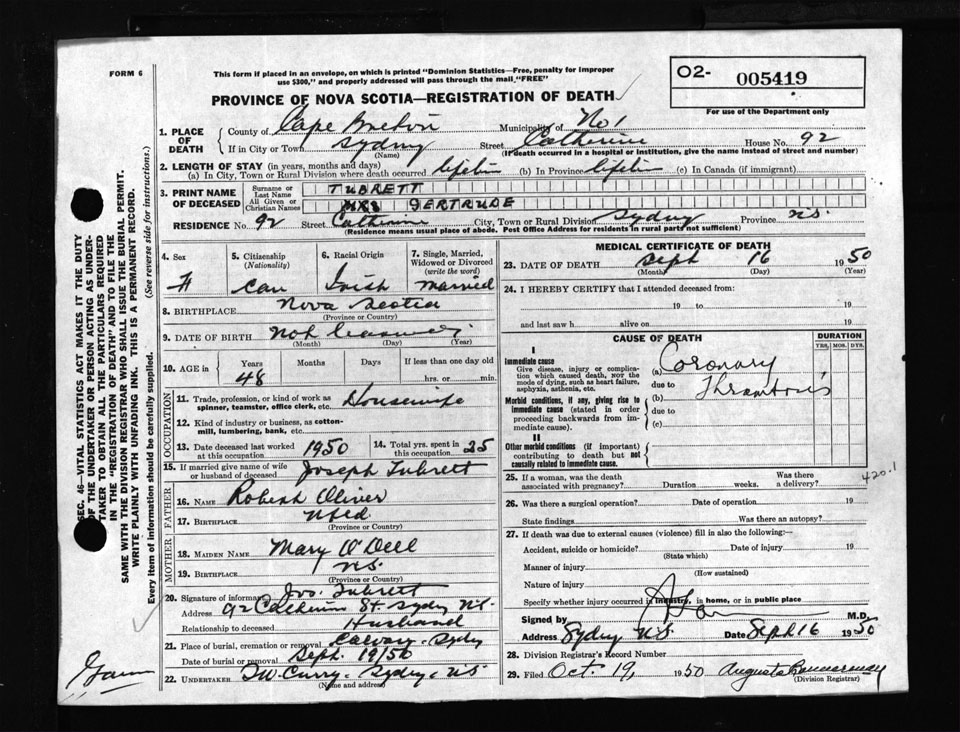 FORM 6
This form if placed in an envelope, on which is printed "Dominion Statistics—Free, penalty for improper
use $300," and properly addressed will pass through the mail "FREE"
O2- 005419
For use of the Department only
PROVINCE OF NOVA SCOTIA—REGISTRATION OF DEATH
1. PLACE OF DEATH
County of Cape Breton Municipality of No 1
If in City or Town Sydney Street Catherine House No. 92
(Name) (If death occurred in a hospital or institution, give the name instead of street and number)
2. LENGTH OF STAY (in years, months and days)
(a) In City, Town or Rural Division where death occurred (b) In Province (c) In Canada (if immigrant)
3. PRINT NAME OF DECEASED
Surname or Last Name TUBRETT
All Given or Christian Names MRS GERTRUDE
RESIDENCE No. 92 Street Catherine City, Town or Rural Division Sydney Province N.S.
(Residence means usual place of abode. Post Office Address for residents in rural parts not sufficient)
4. Sex
F
5. Citizenship
(Nationality)
Can
6. Racial Origin
Irish
7. Single, Married,
Widowed or Divorced
(write the word)
married
8. BIRTHPLACE Nova Scotia
(Province or Country)
9. DATE OF BIRTH Not
(Month) (Day) (Year)
10. AGE in Years Months Days If less than one day old
48 hrs. or min.
OCCUPATION
11. Trade, profession, or kind of work as
spinner, teamster, office clerk, etc. Housewife
12. Kind of industry or business, as cotton-
mill, lumbering, bank, etc.
13. Date deceased last worked
at this occupation 1950
14. Total yrs. spent in
this occupation 25
15. If married give name of wife
or husband of deceased Joseph Tubrett
FATHER
16. NAME Robert Oliver
17. BIRTHPLACE Nfld
(Province or Country)
MOTHER
18. MAIDEN NAME Mary O'Dell
19. BIRTHPLACE N.S.
(Province or Country)
20. Signature of informant Jos. Tubrett
Address 92 Catherine St. Sydney N.S.
Relationship to deceased Husband
21. Place of burial, cremation or removal Calvary - Sydney
Date of burial or removal Sept. 19/50
22. UNDERTAKER Curry - Sydney - N.S
(Name and address)
MEDICAL CERTIFICATE OF DEATH
23. DATE OF DEATH Sept 16 1950
(Month) (Day) (Year)
24. I HEREBY CERTIFY that I attended deceased from:
19 to 19
and last saw h alive on 19
CAUSE OF DEATH
DURATION
YRS. MOS. DYS.
I
Immediate cause
Give disease, injury or complica-
tion which caused death, NOT the
mode of dying, such as heart failure,
asphyxia, asthenia, etc.
(a) Coronary
due to Thrombosis
Morbid conditions, if any, giving rise to
immediate cause (stated in order
proceeding backwards from im-
mediate cause).
(b)
due to
(c)
II
Other morbid conditions (if important)
contributing to death but not
causally related to immediate cause.
420.1
25. If a woman, was the death
associated with pregnancy? Duration weeks. Was there
a delivery?
26. Was there a surgical operation? Date of operation 19
State findings Was there an autopsy?
27. If death was due to external causes (violence) fill in also the following:—
Accident, suicide or homicide? Date of injury 19
(State which)
Manner of injury
(How sustained)
Nature of injury
Specify whether injury occurred in industry, in home, or in public place
Signed by M.D.
Address Sydney N.S. Date Sept 16 1950
28. Division Registrar's Record Number
29. Filed Oct. 19, 1950 Augusta Bannerman
(Division Registrar)
SEC. 46—VITAL STATISTICS ACT MAKES IT THE DUTY
OF THE UNDERTAKER OR PERSON ACTING AS UNDER-
TAKER TO OBTAIN ALL THE PARTICULARS REQUIRED
IN THE "REGISTRATION OF DEATH" AND TO FILE THE
SAME WITH THE DIVISION REGISTRAR WHO SHALL ISSUE THE BURIAL PERMIT.
WRITE PLAINLY WITH UNFADING INK. THIS IS A PERMANENT RECORD.
Every item of information should be carefully supplied. (See reverse side for instructions.)